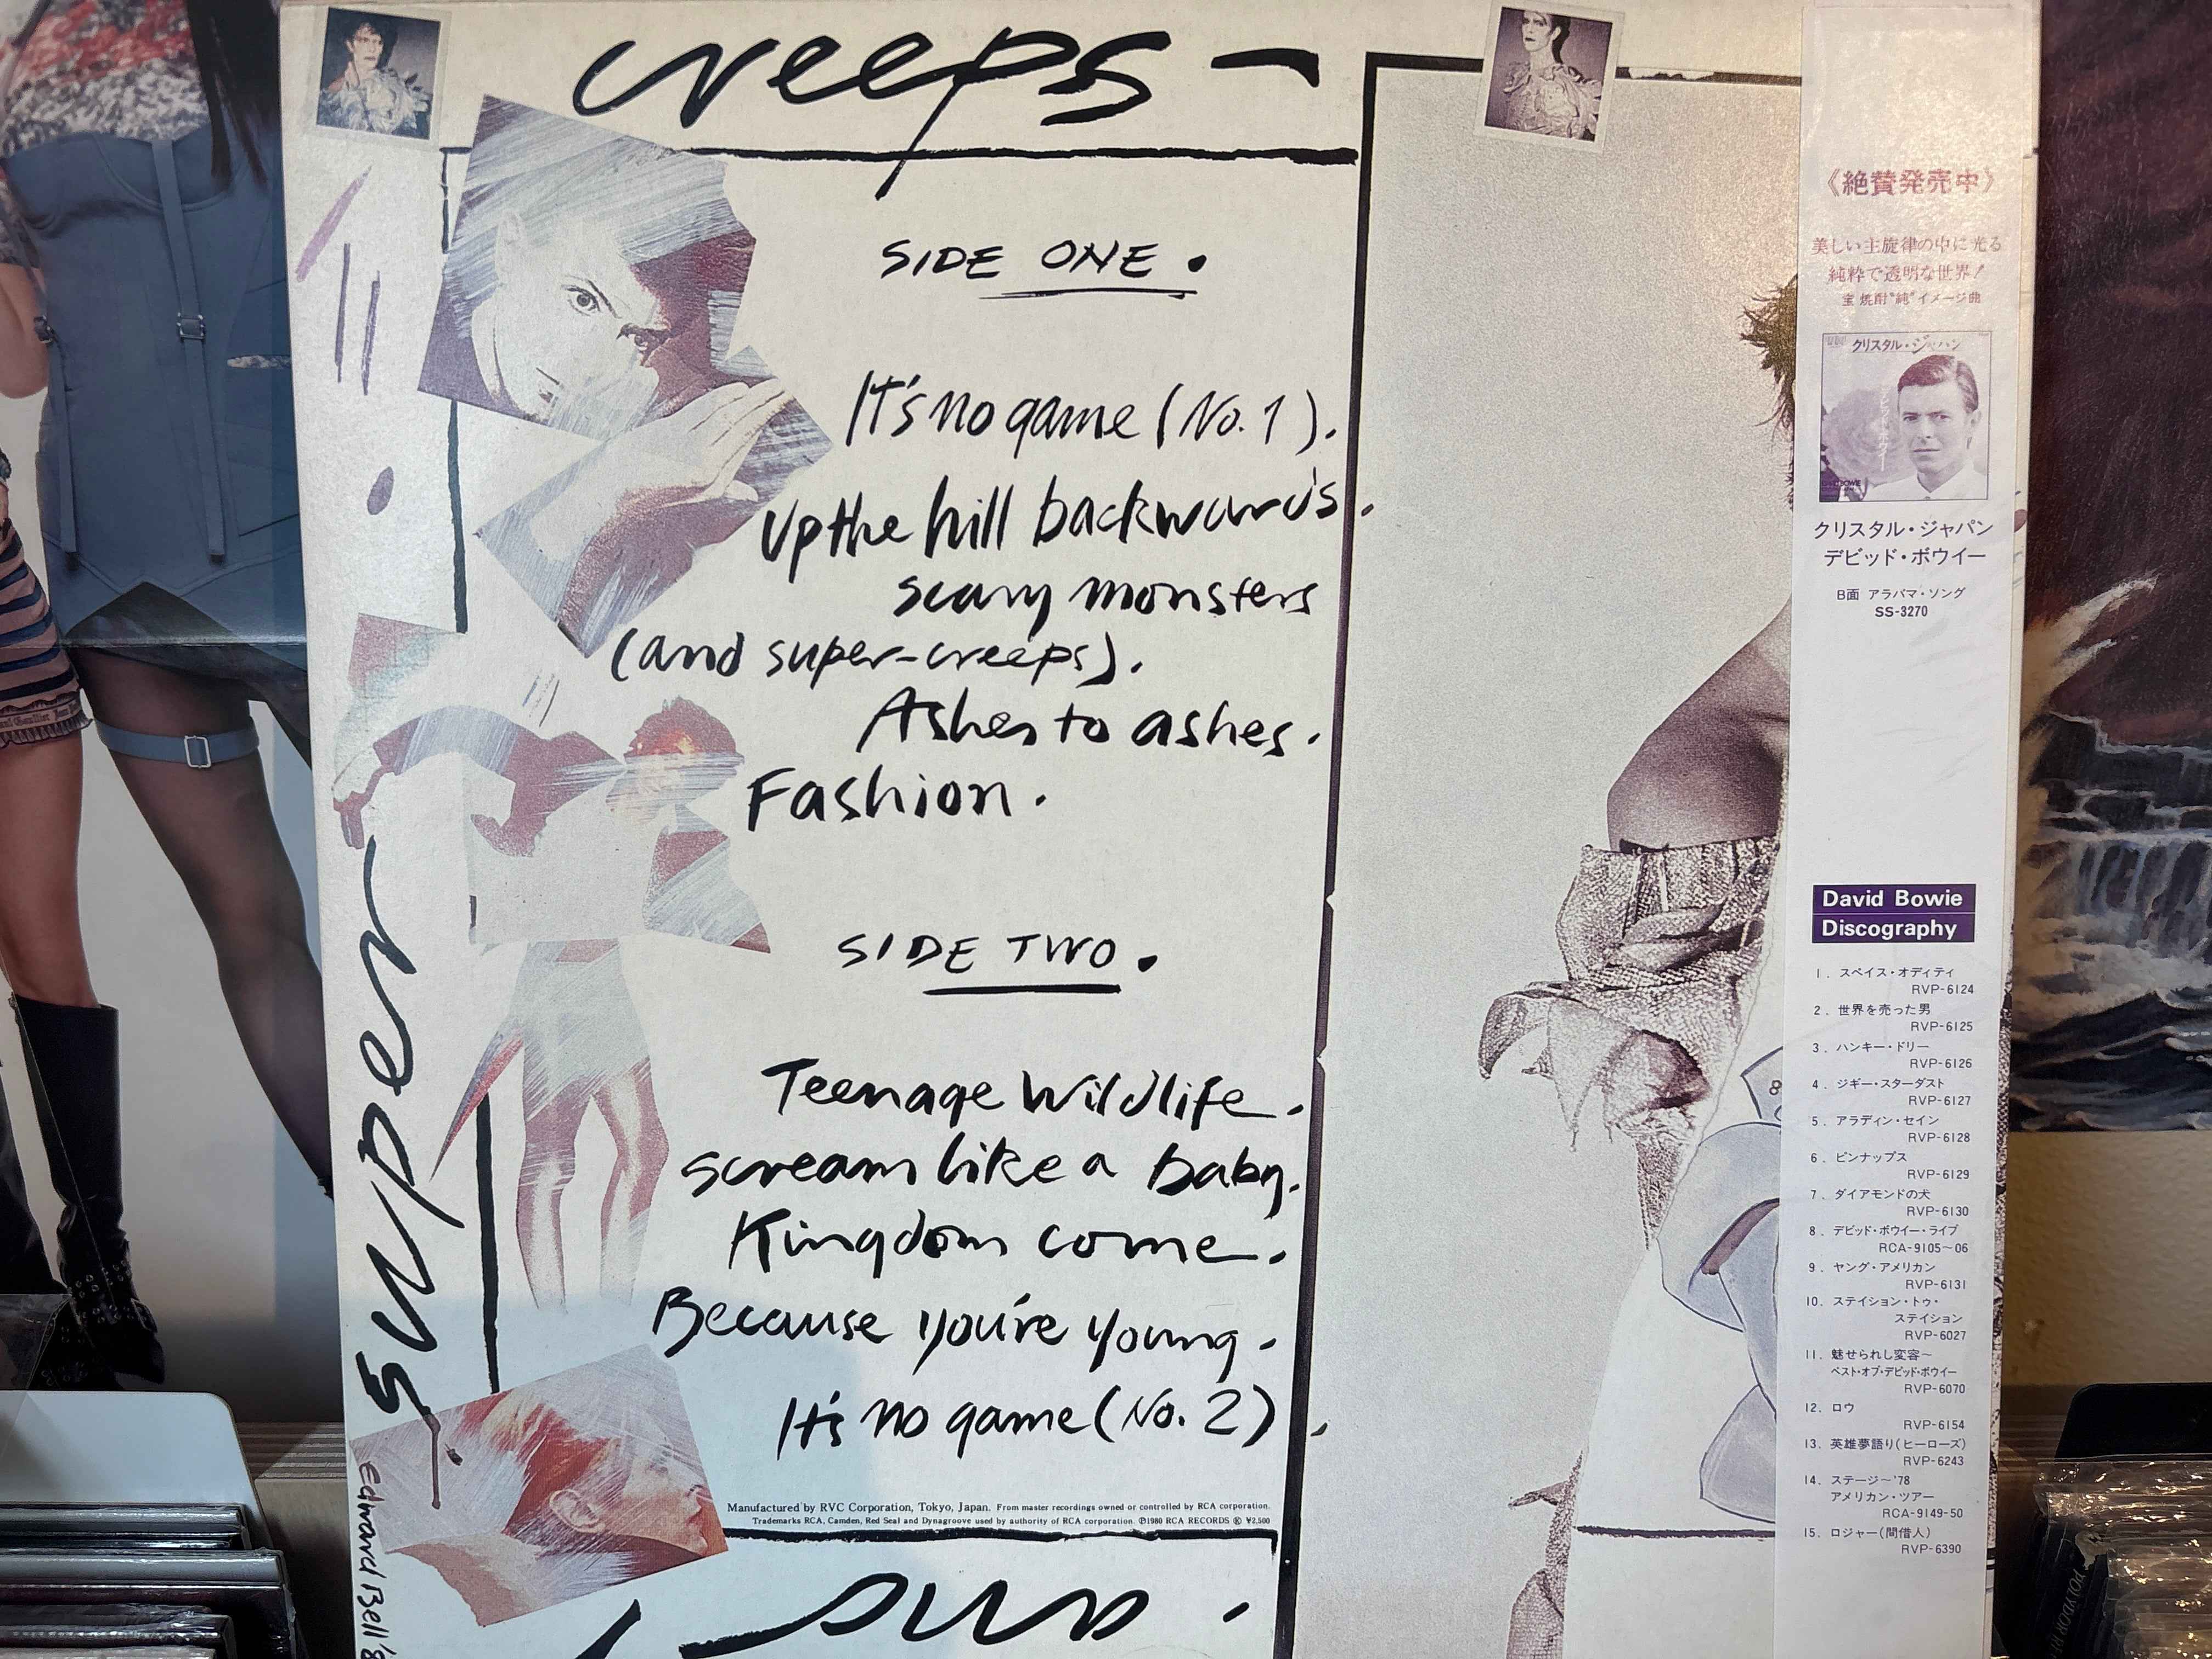 creeps -
SIDE ONE.
It's no game (No. 1).
Up the hill backwards.
scary monsters
(and super-creeps).
Ashes to ashes.
Fashion.
SIDE TWO.
Teenage Wildlife.
scream like a baby.
Kingdom come.
Because you're young.
It's no game (No. 2).
super
Edward Bell '8
Manufactured by RVC Corporation, Tokyo, Japan. From master recordings owned or controlled by RCA corporation.
Trademarks RCA, Camden, Red Seal and Dynagroove used by authority of RCA corporation. Ⓟ1980 RCA RECORDS Ⓚ ¥2,500
《絶賛発売中》
美しい主旋律の中に光る
純粋で透明な世界!
宝焼酎"純"イメージ曲
クリスタル・ジャパン
クリスタル・ジャパン
デビッド・ボウイー
B面 アラバマ・ソング
SS-3270
David Bowie
Discography
1. スペイス・オディティ
RVP-6124
2. 世界を売った男
RVP-6125
3. ハンキー・ドリー
RVP-6126
4. ジギー・スターダスト
RVP-6127
5. アラディン・セイン
RVP-6128
6. ピンナップス
RVP-6129
7. ダイアモンドの犬
RVP-6130
8. デビッド・ボウイー・ライブ
RCA-9105〜06
9. ヤング・アメリカン
RVP-6131
10. ステイション・トゥ・
ステイション
RVP-6027
11. 魅せられし変容〜
ベスト・オブ・デビッド・ボウイー
RVP-6070
12. ロウ
RVP-6154
13. 英雄夢語り(ヒーローズ)
RVP-6243
14. ステージ〜'78
アメリカン・ツアー
RCA-9149-50
15. ロジャー(間借人)
RVP-6390